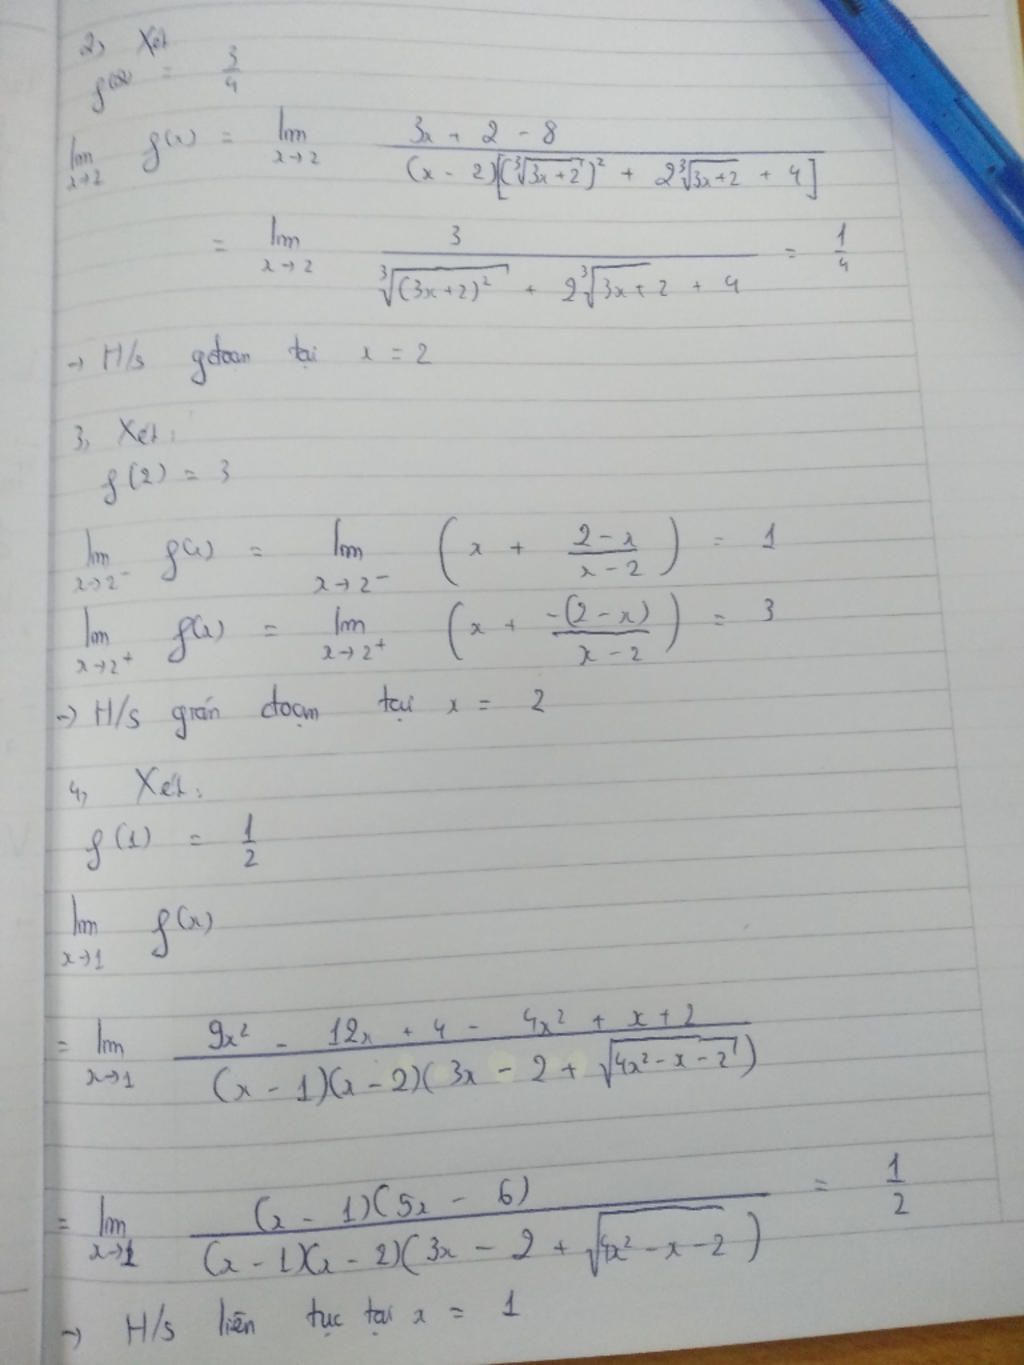 2, Xét
f(2) = 3/4
lim x→2 f(x) = lim x→2 (3x + 2 - 8)/((x - 2)[(∛(3x+2))² + 2∛(3x+2) + 4])
= lim x→2 3/(∛(3x+2)² + 2∛(3x+2) + 4) = 1/4
→ H/s gđoạn tại x = 2
3, Xét:
f(2) = 3
lim x→2⁻ f(x) = lim x→2⁻ (x + (2-x)/(x-2)) = 1
lim x→2⁺ f(x) = lim x→2⁺ (x + (-(2-x))/(x-2)) = 3
→ H/s gián đoạn tại x = 2
4, Xét:
f(1) = 1/2
lim x→1 f(x)
= lim x→1 (9x² - 12x + 4 - 4x² + x + 2)/((x - 1)(x - 2)(3x - 2 + √(4x² - x - 2)))
= lim x→1 ((x - 1)(5x - 6))/((x - 1)(x - 2)(3x - 2 + √(4x² - x - 2))) = 1/2
→ H/s liên tục tại x = 1